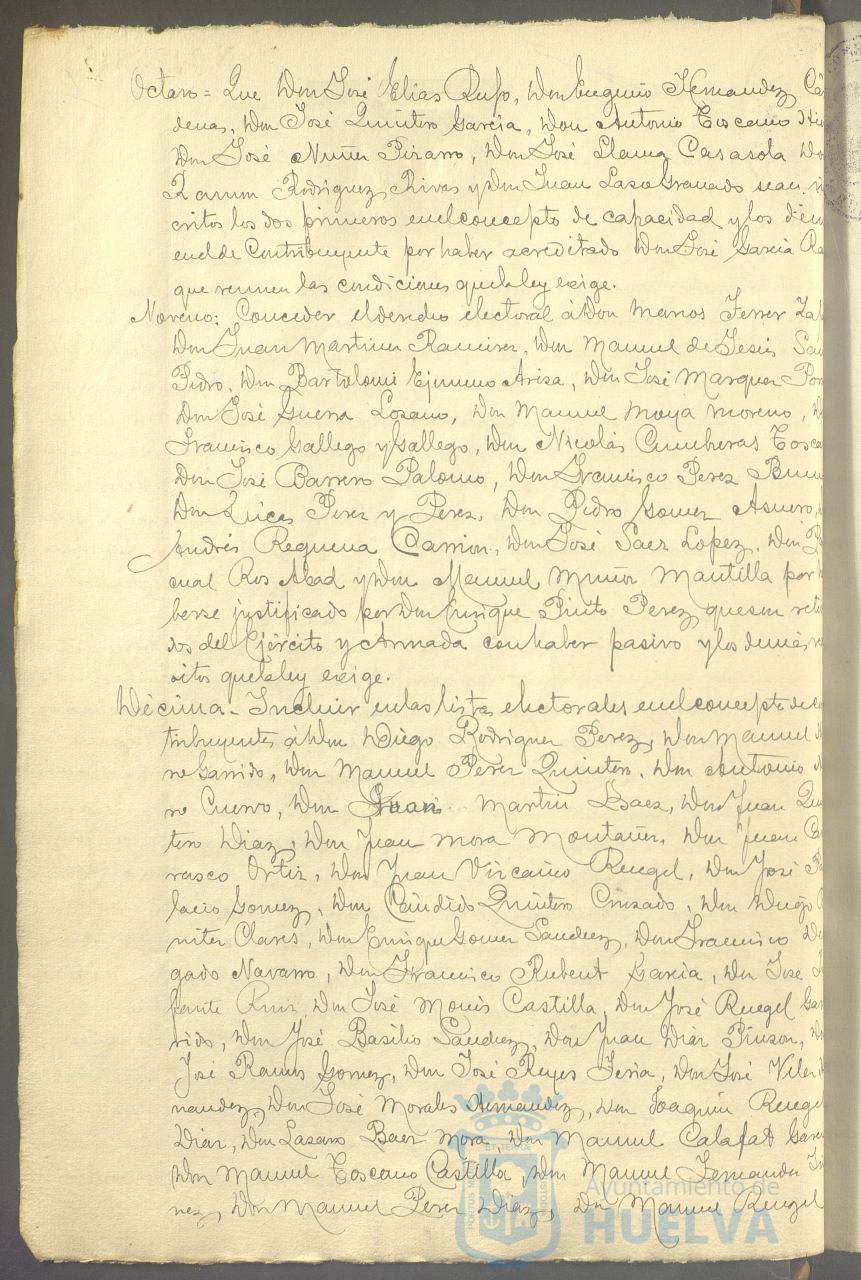 Octavo = Que Don José Elias Rufo, Don Eugenio Hernandez Cár
denas, Don José Quintero Garcia, Don Antonio Toscano
Don José Nuñez Pizarro, Don José Llama Casasola Do
Ramon Rodriguez Rivas y Don Juan Laso Granado sean
critos los dos primeros en el concepto de capacidad y los
en el de Contribuyente por haber acreditado Don José Garcia Ra
que reunen las condiciones que la ley exige.
Noveno: Conceder el derecho electoral á Don Marcos Ferrer
Don Juan Martinez Ramirez, Don Manuel de Jesús San
Pedro, Don Bartolomé Ejimeno Ariza, Don José Marquez
Don José Guerra Lozano, Don Manuel Moya Moreno,
Francisco Gallego y Gallego, Don Nicolás Cumbreras Tosca
Don José Barrero Palomo, Don Francisco Perez
Don Lucas Perez y Perez, Don Pedro Gomez Asuero,
Andrés Requena Carrion, Don José Saez Lopez, Don
cual Ros Abad y Don Manuel Muñoz Mantilla por
berse justificado por Don Enrique Pinto Perez que son reti
dos del Ejército y Armada con haber pasivo y los demás
sitos que la ley exige.
Décima - Incluir en las listas electorales en el concepto de
tribuyentes á Don Diego Rodriguez Perez, Don Manuel
Garrido, Don Manuel Perez Quintero, Don Antonio
ro Cuervo, Don Juan Martin Baez, Don Juan Quin
tero Diaz, Don Juan Mora Montañez, Don Juan
rasco Ortiz, Don Juan Vizcaino Rengel, Don José
lacio Gomez, Don Cándido Quintero Cruzado, Don Diego
Clares, Don Enrique Gomez Sanchez, Don Francisco
gado Navarro, Don Francisco Rubent Garcia, Don José
fante Ruiz, Don José Monis Castilla, Don José Rengel Gar
rido, Don José Basilio Sanchez, Don Juan Diaz Pinzon,
José Ramos Gomez, Don José Reyes Feria, Don José
nandez, Don José Morales Hernandez, Don Joaquin Rengel
Diaz, Don Lazaro Baez Mora, Don Manuel Calafat
Don Manuel Toscano Castilla, Don Manuel Fernandez
nez, Don Manuel Perez Diaz, Don Manuel Rengel
Ayuntamiento de
HUELVA